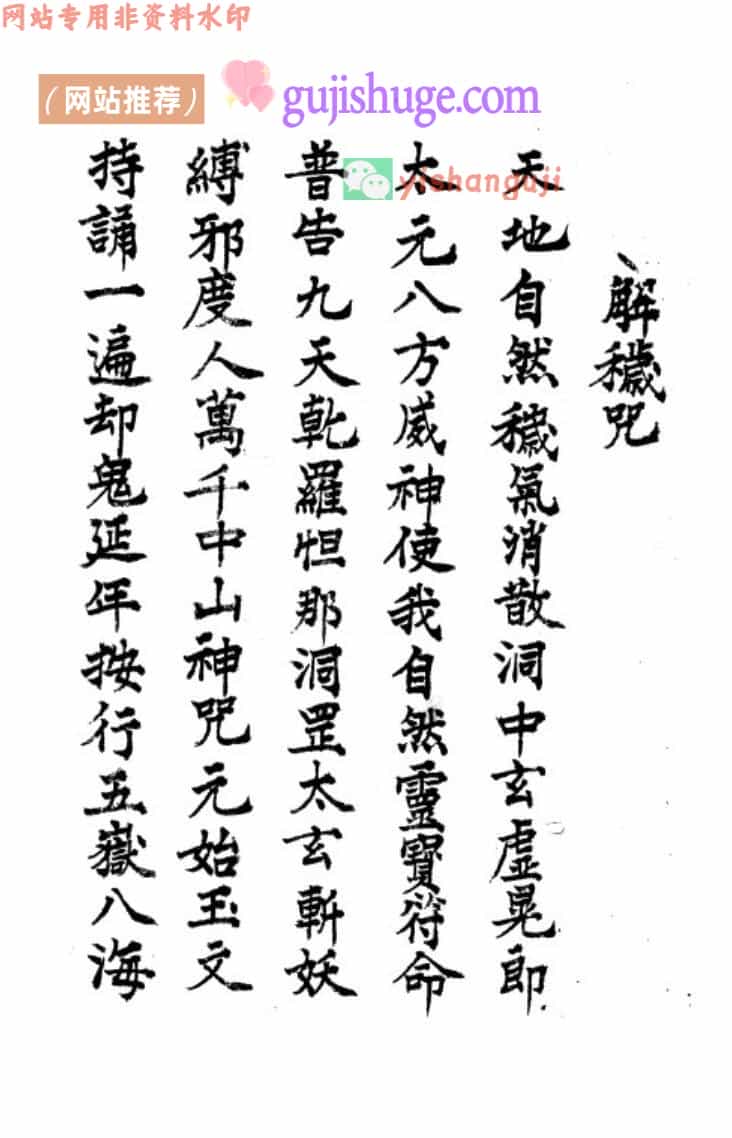 网站专用非资料水印
(网站推荐) gujishuge.com
yishanguji
解穢咒
天地自然穢氣消散洞中玄虛晃郎
太元八方威神使我自然靈寳符命
普告九天乾羅怛那洞罡太玄斬妖
縛邪度人萬千中山神咒元始玉文
持誦一遍却鬼延年按行五嶽八海